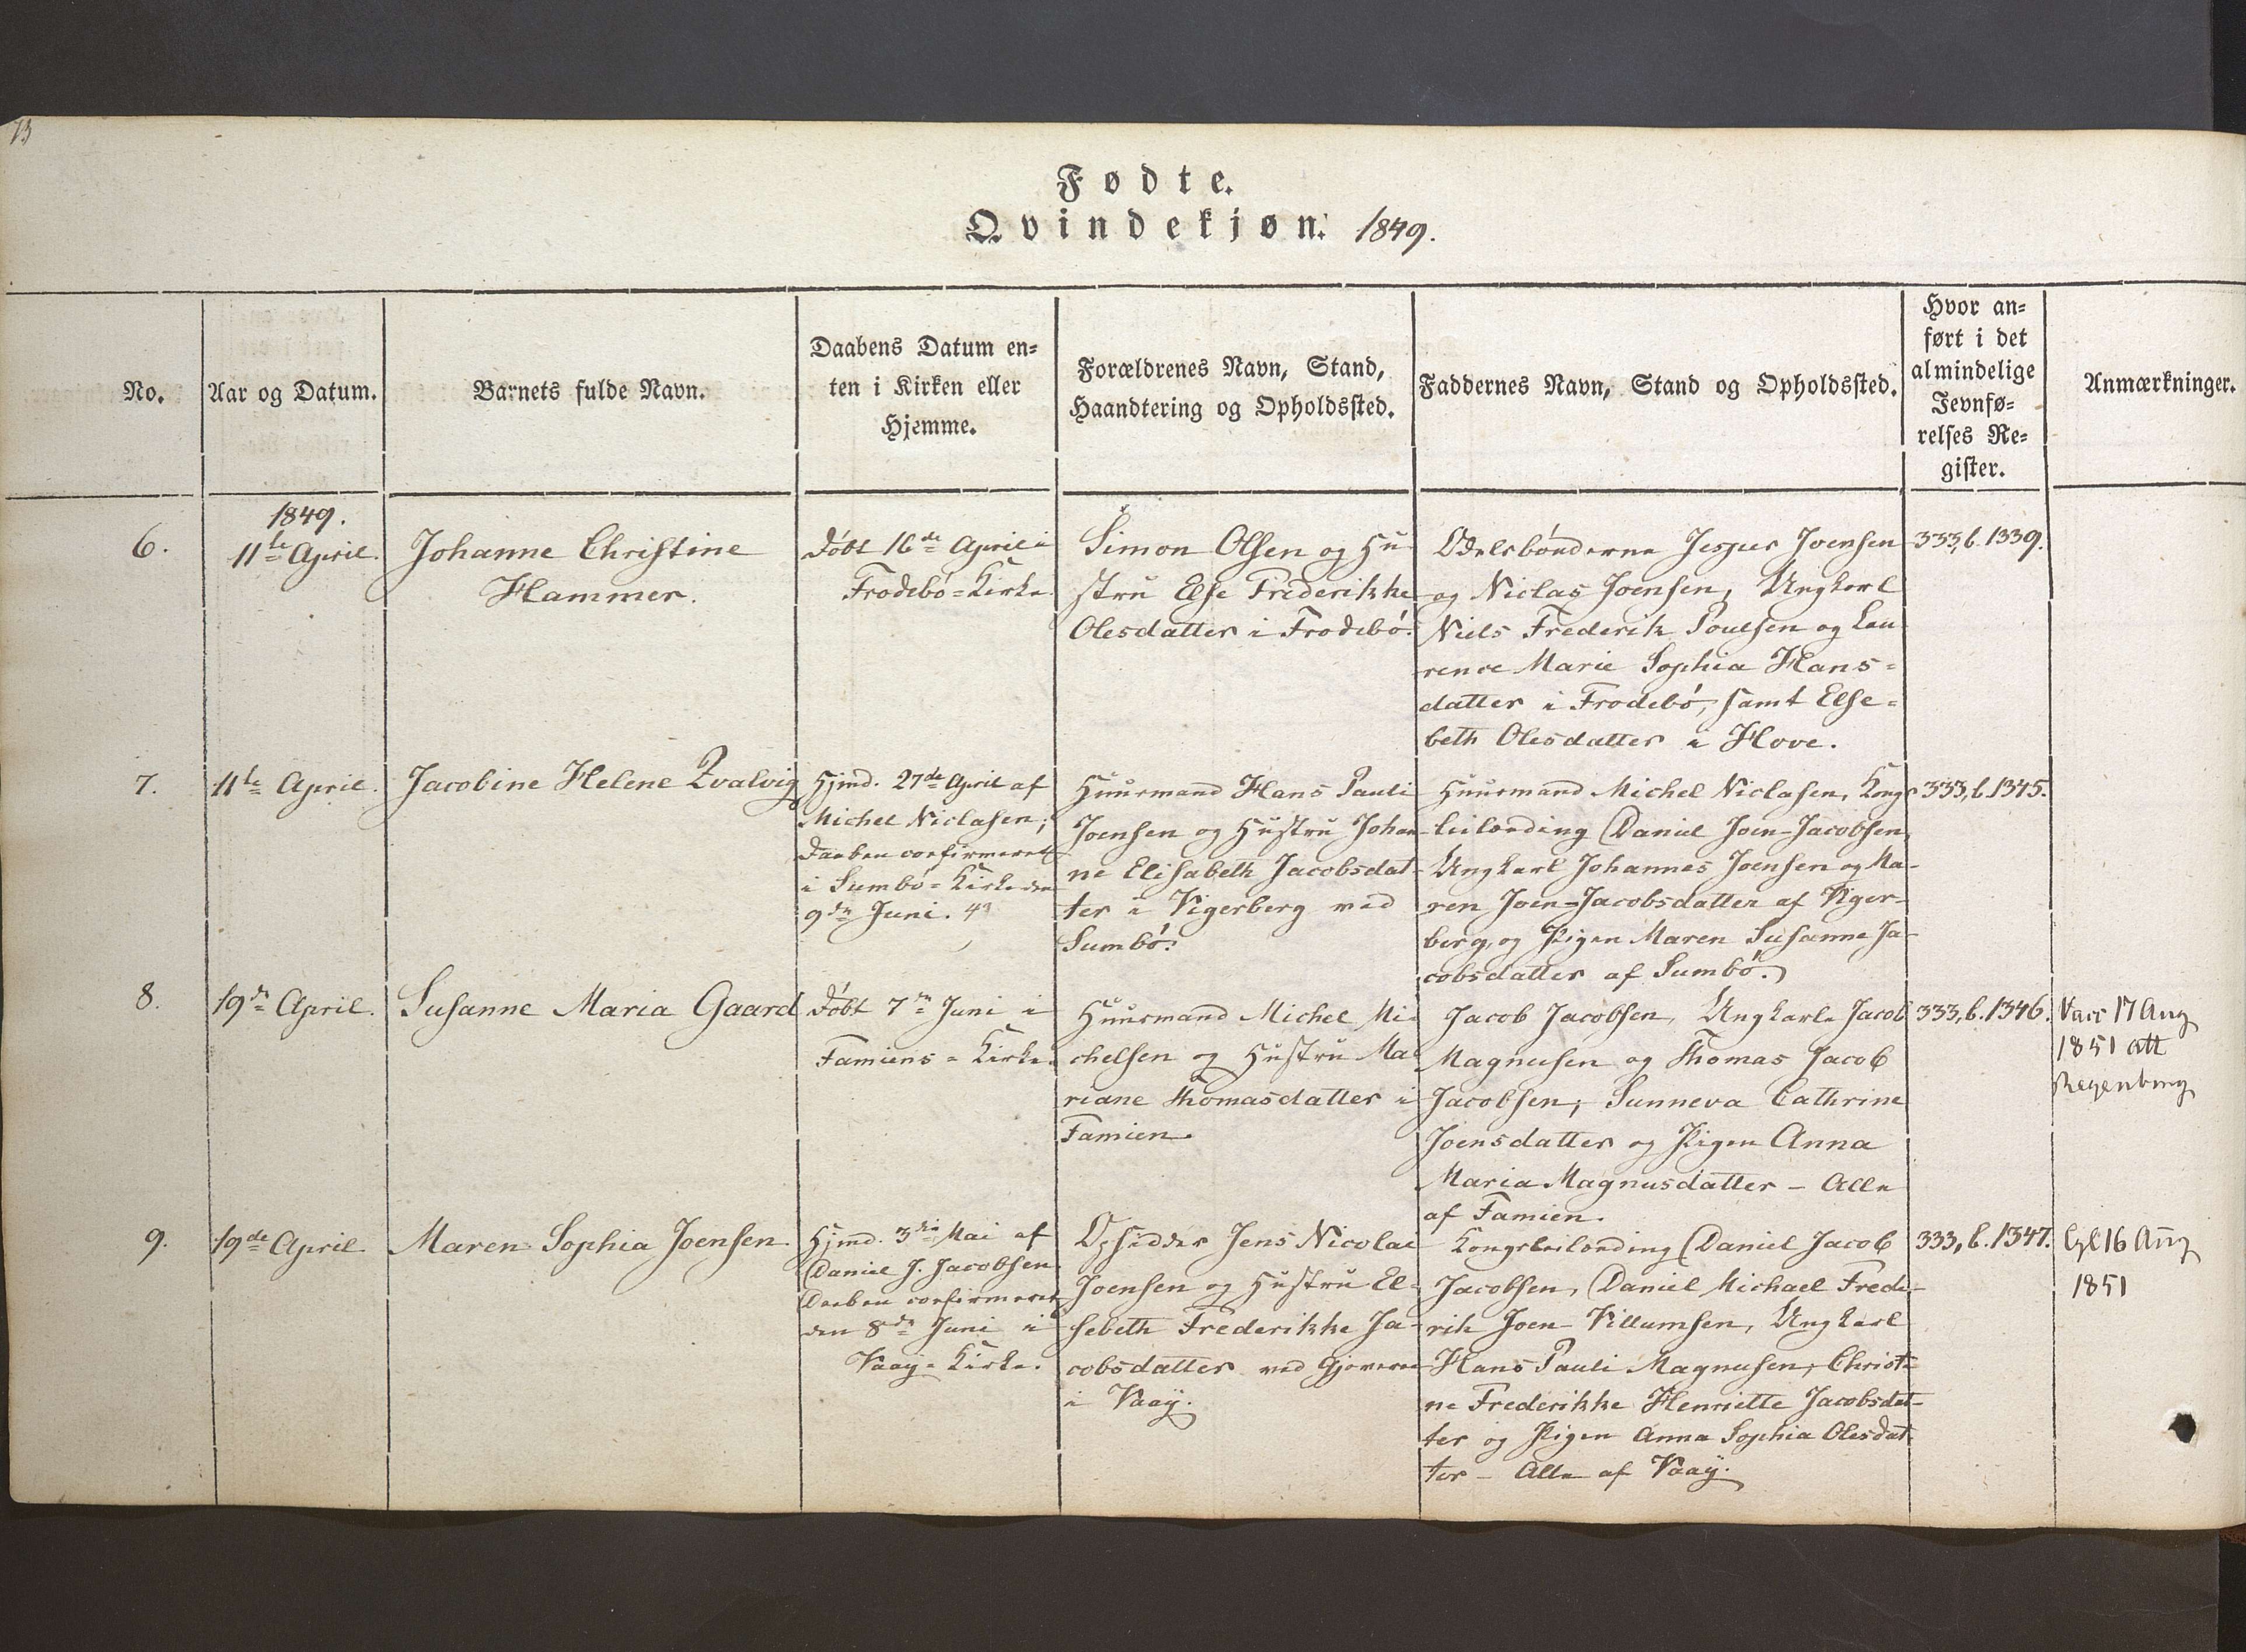 73
Fødte.
Qvindekjøn. 1849.
No.
Aar og Datum.
Barnets fulde Navn.
Daabens Datum en-
ten i Kirken eller
Hjemme.
Forældrenes Navn, Stand,
Haandtering og Opholdssted.
Faddernes Navn, Stand og Opholdssted.
Hvor an-
ført i det
almindelige
Jevnfø-
relses Re-
gister.
Anmærkninger.
6.
1849.
11te April.
Johanne Christine
Hammer.
Døbt 16de April i
Frodebø-Kirke
Simon Olsen og Hu-
stru Else Frederikke
Olesdatter i Frodebø.
Odelsbønderne Jesper Joensen
og Niclas Joensen, Ungkarl
Niels Frederik Poulsen og Lau-
rence Marie Sophia Hans-
datter i Frodebø, samt Else-
beth Olesdatter i Hove.
333, b. 1339.
7.
11te April.
Jacobine Helene Qvalvig
Hjmd. 27de April af
Michel Niclasen;
Daaben confirmeret
i Sumbø-Kirke den
9de Juni. 49
Huusmand Hans Pauli
Joensen og Hustru Johan-
ne Elisabeth Jacobsdat-
ter i Vigerberg ved
Sumbø.
Huusmand Michel Niclasen, Kongs-
leilænding Daniel Joen-Jacobsen,
Ungkarl Johannes Joensen og Ma-
ren Joen-Jacobsdatter af Viger-
berg, og Pigen Maren Susanne Ja-
cobsdatter af Sumbø.
333, b. 1345.
8.
19de April.
Susanne Maria Gaard
Døbt 7de Juni i
Famiens-Kirke.
Huusmand Michel Mi-
chelsen og Hustru Ma-
riane Thomasdatter i
Famien.
Jacob Jacobsen, Ungkarle Jacob
Magnusen og Thomas Jacob
Jacobsen; Sunneva Cathrine
Joensdatter og Pigen Anna
Maria Magnusdatter - Alle
af Famien.
333, b. 1346.
Vacc 17 Aug
1851 att
Regenburg
9.
19de April
Maren Sophia Joensen
Hjmd. 3die Mai af
Daniel J. Jacobsen
Daaben confirmeret
den 8de Juni i
Vaag-Kirke.
Opsidder Jens Nicolai
Joensen og Hustru El-
sebeth Frederikke Ja-
cobsdatter ved Gjoverne
i Vaag.
Kongsleilænding Daniel Jacob
Jacobsen, Daniel Michael Frede-
rik Joen-Villumsen, Ungkarl
Hans Pauli Magnusen, Christi-
ne Frederikke Henriette Jacobsdat-
ter og Pigen Anna Sophia Olesdat-
ter - Alle af Vaag.
333, b. 1347.
16 Aug
1851